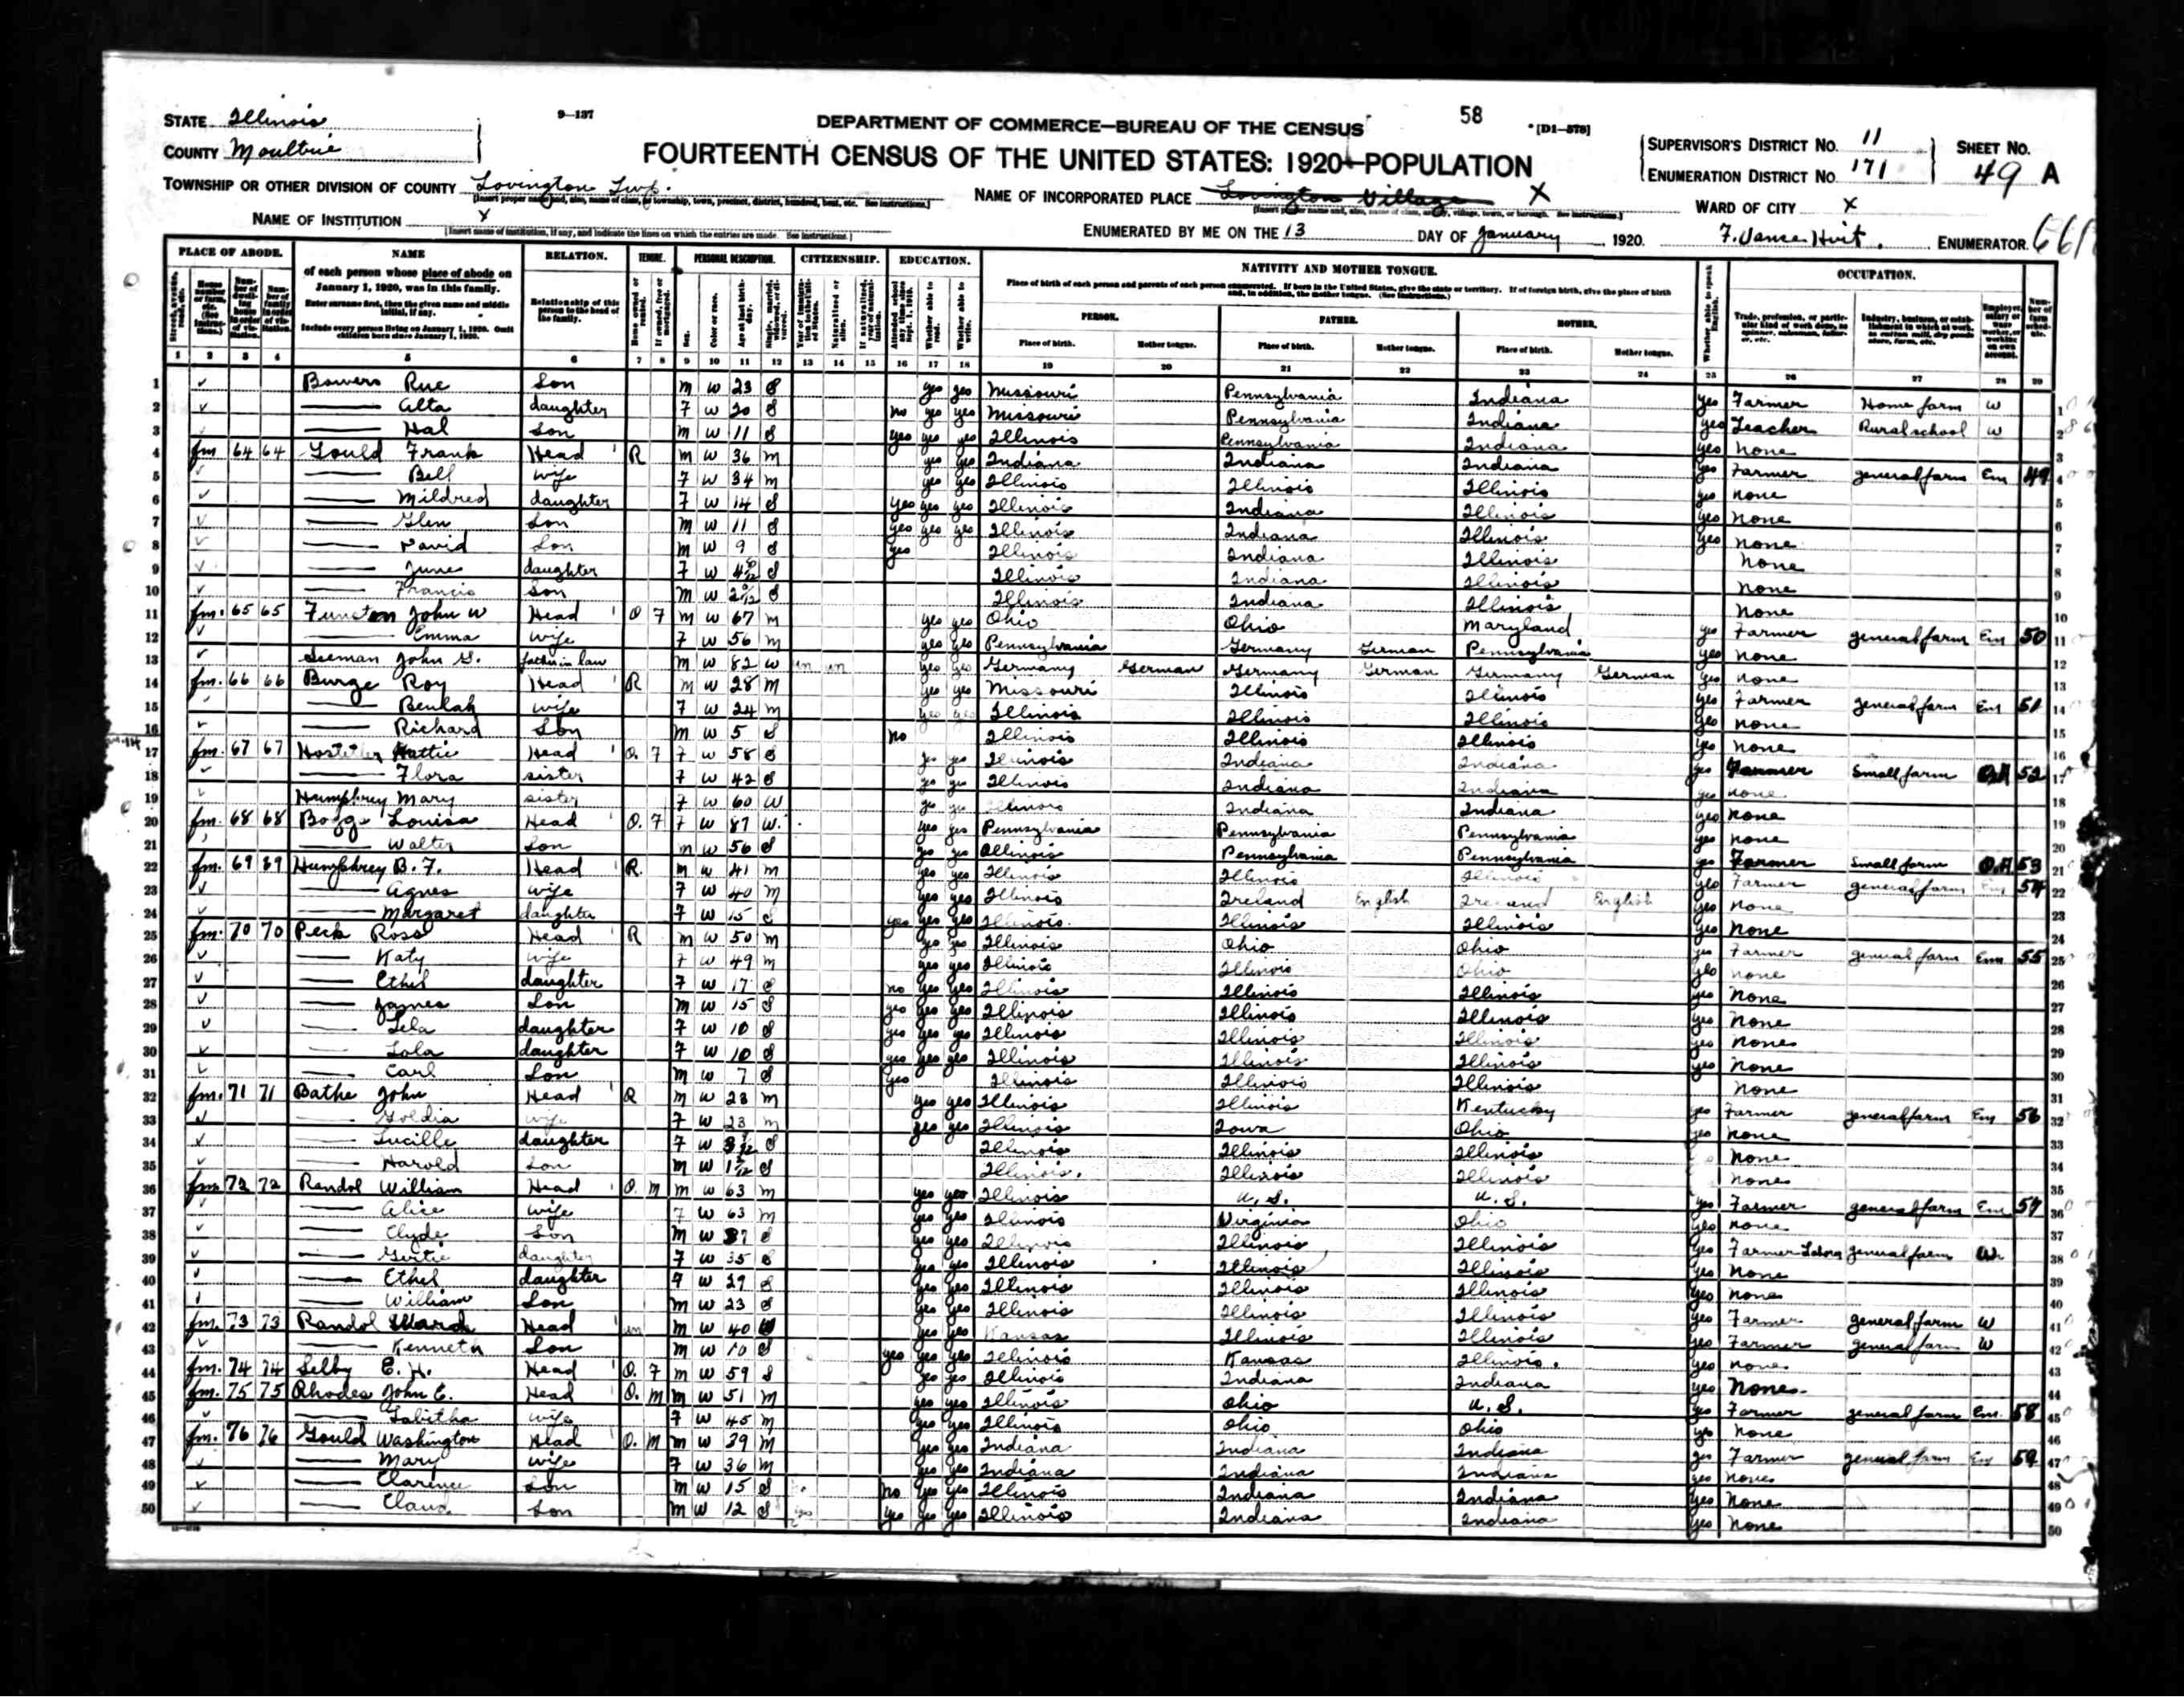 9—137
58
[D1—578]
DEPARTMENT OF COMMERCE—BUREAU OF THE CENSUS
FOURTEENTH CENSUS OF THE UNITED STATES: 1920—POPULATION
STATE Illinois
COUNTY Moultrie
TOWNSHIP OR OTHER DIVISION OF COUNTY Lovington Twp.
NAME OF INSTITUTION X
[Insert name of institution, if any, and indicate the lines on which the entries are made. See instructions.]
NAME OF INCORPORATED PLACE Lovington Village X
ENUMERATED BY ME ON THE 13 DAY OF January, 1920.
SUPERVISOR'S DISTRICT No. 11
ENUMERATION DISTRICT No. 171
SHEET No. 49 A
WARD OF CITY X
ENUMERATOR.
PLACE OF ABODE. NAME RELATION. TENURE. PERSONAL DESCRIPTION. CITIZENSHIP. EDUCATION. NATIVITY AND MOTHER TONGUE. OCCUPATION.
of each person whose place of abode on January 1, 1920, was in this family.
Enter surname first, then the given name and middle initial, if any.
Include every person living on January 1, 1920. Omit children born since January 1, 1920.
Relationship of this person to the head of the family.
Place of birth of each person and parents of each person enumerated. If born in the United States, give the state or territory. If of foreign birth, give the place of birth and, in addition, the mother tongue. (See instructions.)
PERSON. FATHER. MOTHER.
Place of birth. Mother tongue. Place of birth. Mother tongue. Place of birth. Mother tongue.
1 2 3 4 5 6 7 8 9 10 11 12 13 14 15 16 17 18 19 20 21 22 23 24 25 26 27 28 29
1 Bowers Rue Son M W 23 S yes yes Missouri Pennsylvania Indiana yes Farmer Home farm W
2 — Alta daughter F W 20 S no yes yes Missouri Pennsylvania Indiana yes Teacher Rural school W
3 — Hal Son M W 11 S yes yes yes Illinois Pennsylvania Indiana yes None
4 fm 64 64 Gould Frank Head R M W 36 M yes yes Indiana Indiana Indiana yes Farmer general farm Em 49
5 — Bell wife F W 34 M yes yes Illinois Illinois Illinois yes None
6 — Mildred daughter F W 14 S yes yes yes Illinois Indiana Illinois yes None
7 — Glen Son M W 11 S yes yes yes Illinois Indiana Illinois yes None
8 — David Son M W 9 S yes Illinois Indiana Illinois None
9 — June daughter F W S Illinois Indiana Illinois None
10 — Francis Son M W S Illinois Indiana Illinois None
11 fm. 65 65 Funston John W Head O F M W 67 M yes yes Ohio Ohio Maryland yes Farmer general farm Em 50
12 — Emma wife F W 56 M yes yes Pennsylvania Germany German Pennsylvania yes None
13 John G. father in law M W 82 W un un yes yes Germany German Germany German Germany German yes None
14 fm. 66 66 Burge Roy Head R M W 28 M yes yes Missouri Illinois Illinois yes Farmer general farm Em 51
15 — Beulah wife F W 24 M yes yes Illinois Illinois Illinois yes None
16 — Richard Son M W 5 S no Illinois Illinois Illinois yes None
17 fm. 67 67 Hostetler Hattie Head O. F F W 58 S yes yes Illinois Indiana Indiana yes Farmer Small farm OA 52
18 — Flora sister F W 42 S yes yes Illinois Indiana Indiana yes None
19 Humphrey Mary sister F W 60 W yes yes Illinois Indiana Indiana yes None
20 fm. 68 68 Boggs Louisa Head O. F F W 87 W. yes yes Pennsylvania Pennsylvania Pennsylvania yes None
21 — Walter Son M W 56 S yes yes Illinois Pennsylvania Pennsylvania yes Farmer Small farm O.A 53
22 fm. 69 69 Humphrey B. F. Head R. M W 41 M yes yes Illinois Illinois Illinois yes Farmer general farm Em 54
23 — Agnes wife F W 40 M yes yes Illinois Ireland English Ireland English yes None
24 — Margaret daughter F W 15 S yes yes yes Illinois Illinois Illinois yes None
25 fm. 70 70 Peck Ross Head R M W 50 M yes yes Illinois Ohio Ohio yes Farmer general farm Em 55
26 — Katy wife F W 49 M yes yes Illinois Illinois Ohio yes None
27 — Ethel daughter F W 17 S no yes yes Illinois Illinois Illinois yes None
28 — James Son M W 15 S yes yes yes Illinois Illinois Illinois yes None
29 — Lela daughter F W 10 S yes yes yes Illinois Illinois Illinois yes None
30 — Lola daughter F W 10 S yes yes yes Illinois Illinois Illinois yes None
31 — Carl Son M W 7 S yes Illinois Illinois Illinois None
32 fm. 71 71 Bathe John Head R M W 23 M yes yes Illinois Illinois Kentucky yes Farmer general farm Em 56
33 — Goldia wife F W 23 M yes yes Illinois Iowa Ohio yes None
34 — Lucille daughter F W S Illinois Illinois Illinois None
35 — Harold Son M W S Illinois. Illinois Illinois None
36 fm. 72 72 Randol William Head O. M M W 63 M yes yes Illinois U. S. U. S. yes Farmer general farm Em 57
37 — Alice wife F W 63 M yes yes Illinois Virginia Ohio yes None
38 — Clyde Son M W 37 S yes yes Illinois Illinois Illinois yes Farmer Labor general farm W
39 — Gertie daughter F W 35 S yes yes Illinois Illinois Illinois yes None
40 — Ethel daughter F W 29 S yes yes Illinois Illinois Illinois yes None
41 — William Son M W 23 S yes yes Illinois Illinois Illinois yes Farmer general farm W
42 fm. 73 73 Randol Ward Head un M W 40 W yes yes Kansas Illinois Illinois yes Farmer general farm W
43 — Kenneth Son M W 10 S yes yes yes Illinois Kansas Illinois. yes None
44 fm. 74 74 Selby E. H. Head O. F M W 59 S yes yes Illinois Indiana Indiana yes None
45 fm. 75 75 Rhodes John E. Head O. M M W 51 M yes yes Illinois Ohio U. S. yes Farmer general farm Em. 58
46 — Tabitha wife F W 45 M yes yes Illinois Ohio Ohio yes None
47 fm. 76 76 Gould Washington Head O. M M W 39 M yes yes Indiana Indiana Indiana yes Farmer general farm Em 59
48 — Mary wife F W 36 M yes yes Indiana Indiana Indiana yes None
49 — Clarence Son M W 15 S no yes yes Illinois Indiana Indiana yes None
50 — Claud. Son M W 12 S yes yes yes Illinois Indiana Indiana yes None